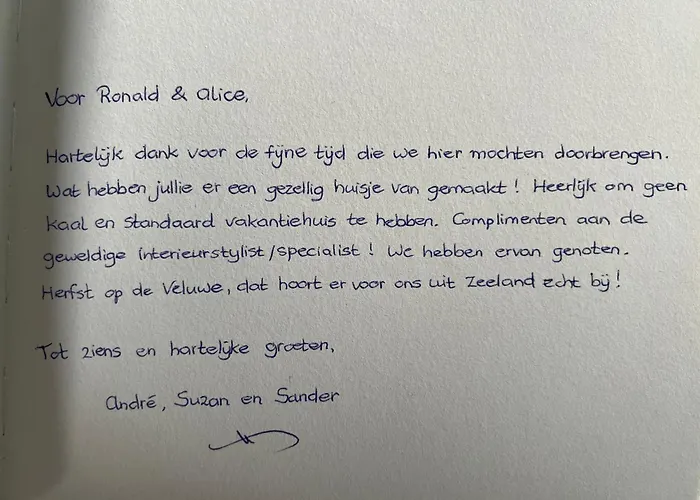 Voor Ronald & Alice,
Hartelijk dank voor de fijne tijd die we hier mochten doorbrengen.
Wat hebben jullie er een gezellig huisje van gemaakt! Heerlijk om geen
kaal en standaard vakantiehuis te hebben. Complimenten aan de
geweldige interieurstylist/specialist! We hebben ervan genoten.
Herfst op de Veluwe, dat hoort er voor ons uit Zeeland echt bij!
Tot ziens en hartelijke groeten,
André, Suzan en Sander